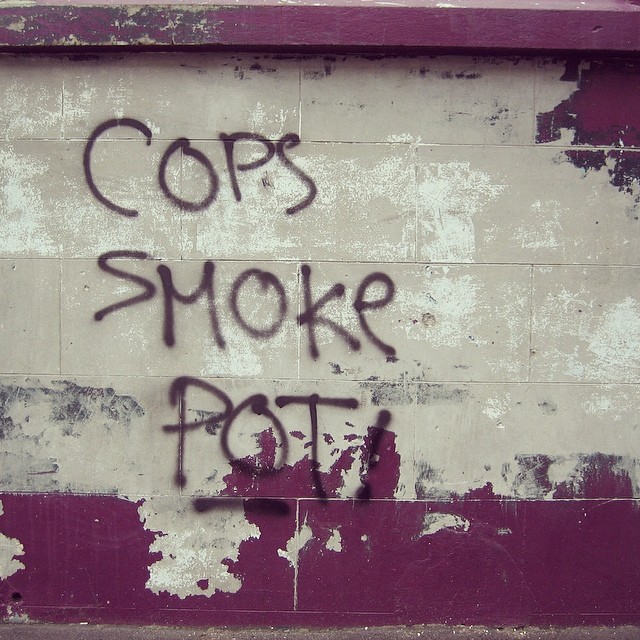 COPS
SMOKe
POT!